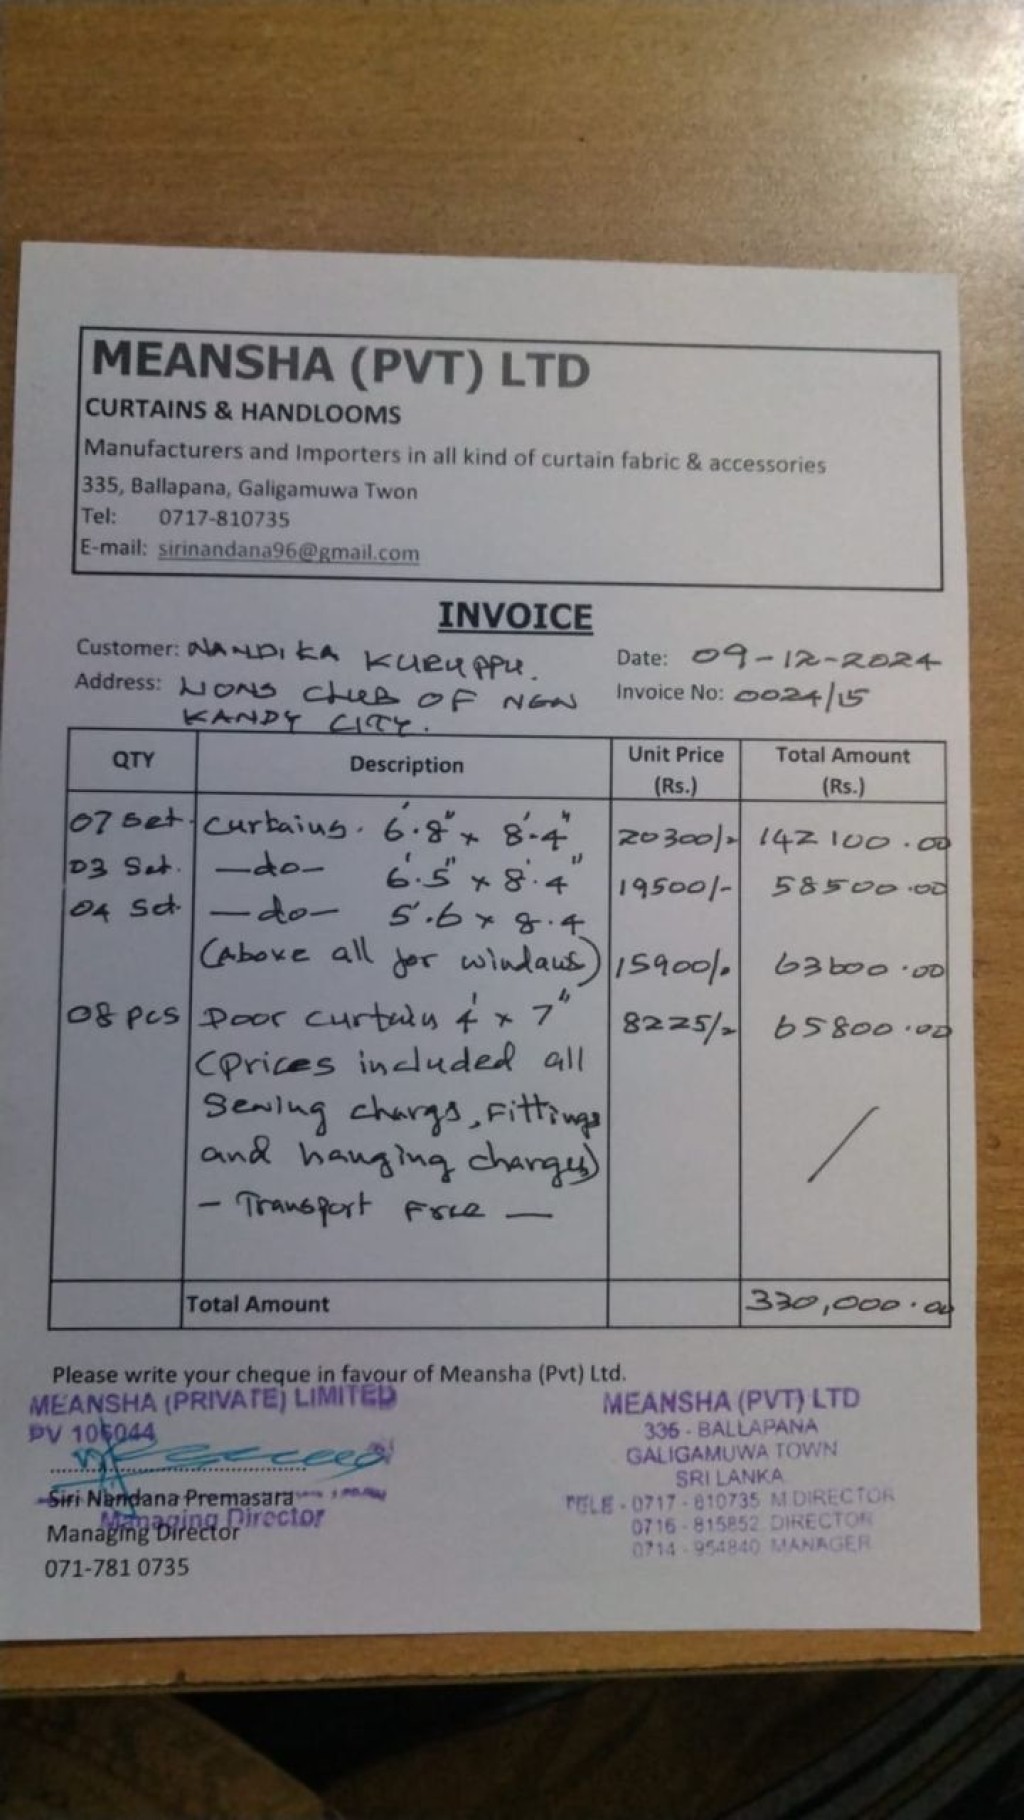 MEANSHA (PVT) LTD
CURTAINS & HANDLOOMS
Manufacturers and Importers in all kind of curtain fabric & accessories
335, Ballapana, Galigamuwa Twon
Tel: 0717-810735
E-mail: sirinandana96@gmail.com
INVOICE
Customer: NANDIKA KURUPPU. Date: 09-12-2024
Address: LIONS CLUB OF NEW Invoice No: 0024/15
KANDY CITY.
QTY Description Unit Price (Rs.) Total Amount (Rs.)
07 Set. Curtains. 6'.8" x 8'.4" 20300/= 142 100.00
03 Set. —do— 6'.5" x 8'.4" 19500/- 58500.00
04 Set. —do— 5'.6 x 8.4
(Above all for windows) 15900/. 63600.00
08 pcs Door curtain 4' x 7" 8225/= 65800.00
(Prices included all
Sewing chargs, Fittings
and hanging charges)
— Transport Free —
Total Amount 330,000.00
Please write your cheque in favour of Meansha (Pvt) Ltd.
MEANSHA (PRIVATE) LIMITED
PV 105044
Siri Nandana Premasara
Managing Director
Managing Director
071-781 0735
MEANSHA (PVT) LTD
335 - BALLAPANA
GALIGAMUWA TOWN
SRI LANKA
TELE - 0717 - 810735 M.DIRECTOR
0716 - 815852 DIRECTOR
0714 - 954840 MANAGER